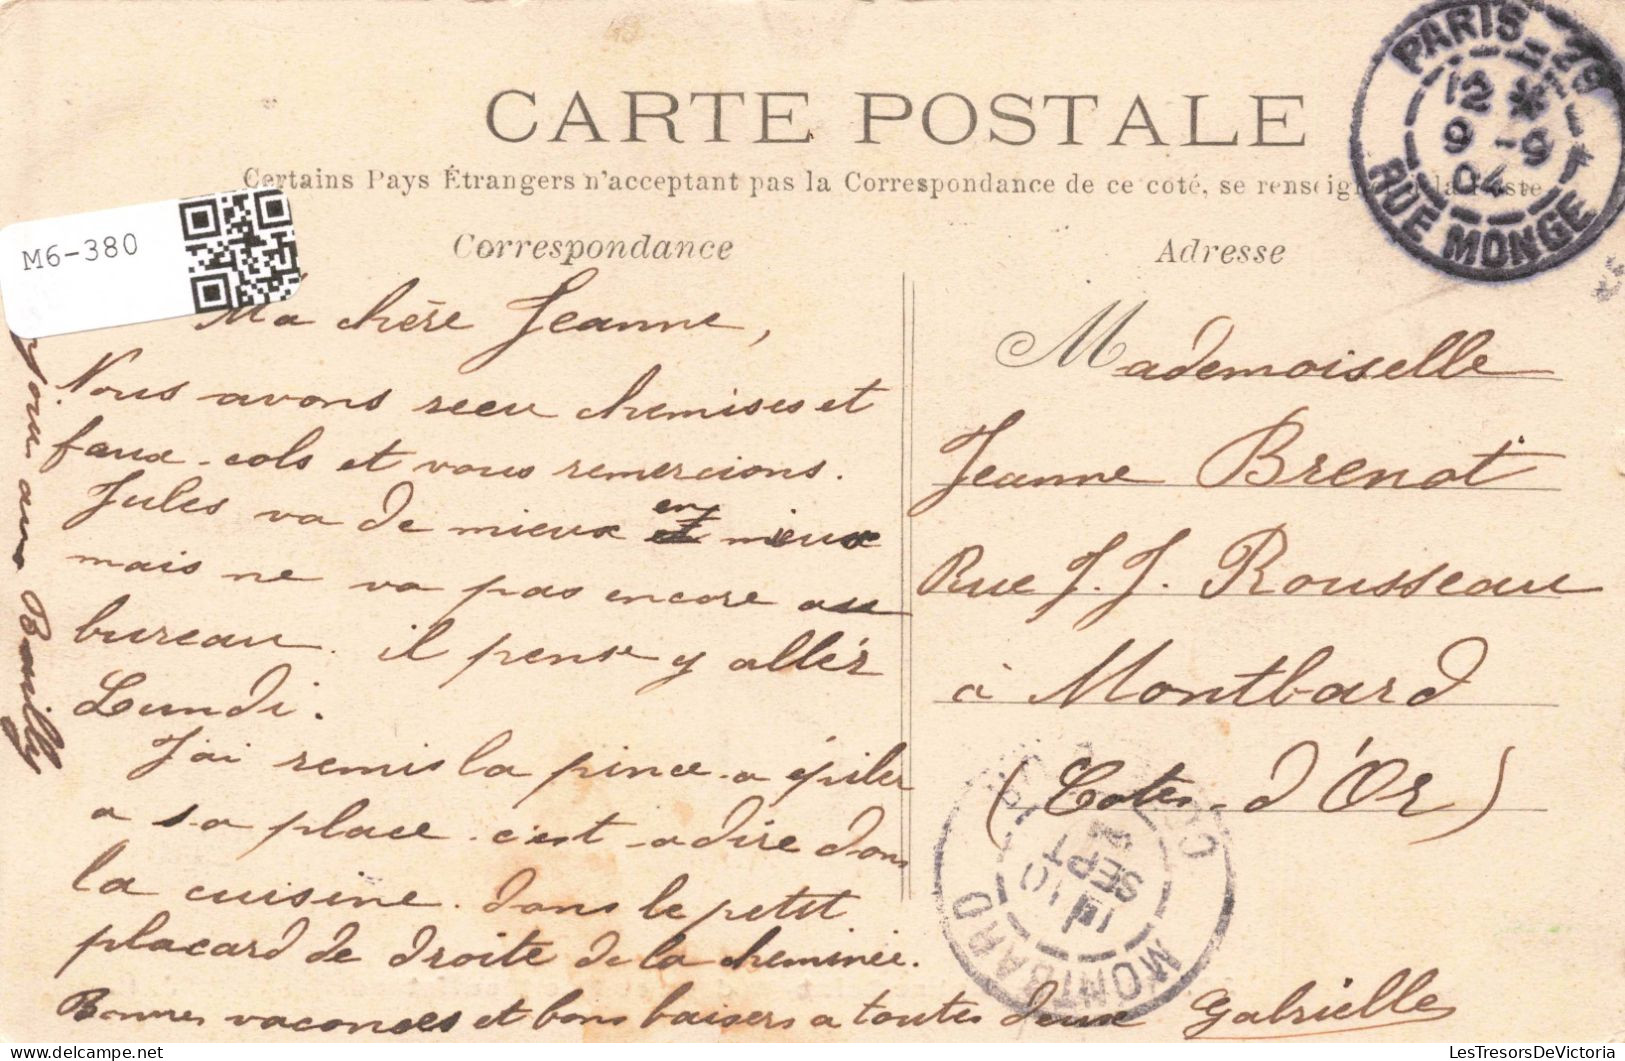 CARTE POSTALE
Certains Pays Étrangers n'acceptant pas la Correspondance de ce coté, se renseigner à la Poste
M6-380
Correspondance
Adresse
PARIS_29
12 *
9 -9
04
RUE MONGE
Ma chère Jeanne,
Nous avons recu chemises et
faux-cols et vous remercions.
Jules va de mieux en mieux
mais ne va pas encore au
bureau. il pense y aller
Lundi.
J'ai remis la pince a épiler
a sa place. c'est a dire dans
la cuisine. dans le petit
placard de droite de la cheminée.
Bonnes vacances et bons baisers a toutes deux Gabrielle
aux Bailly
Mademoiselle
Jeanne Brenot
Rue J. J. Rousseau
à Montbard
(Cote-d'Or)
MONTBARD
10
SEPT
LesTresorsDeVictoria